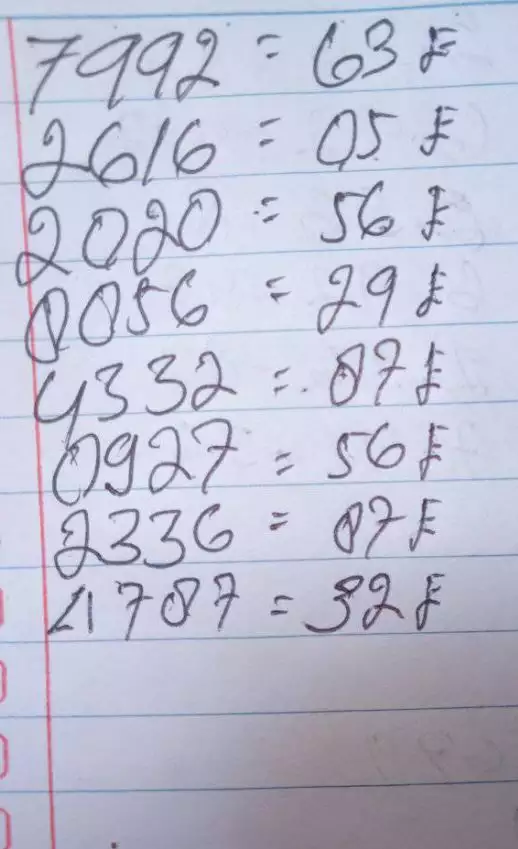 7992 = 63 F
2616 = 05 F
2020 = 56 F
0056 = 29 F
4332 = 07 F
0927 = 56 F
2336 = 07 F
4787 = 32 F